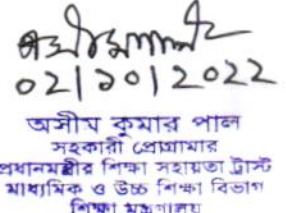 ০২/১০/২০২২
অসীম কুমার পাল
সহকারী প্রোগ্রামার
প্রধানমন্ত্রীর শিক্ষা সহায়তা ট্রাস্ট
মাধ্যমিক ও উচ্চ শিক্ষা বিভাগ
শিক্ষা মন্ত্রণালয়